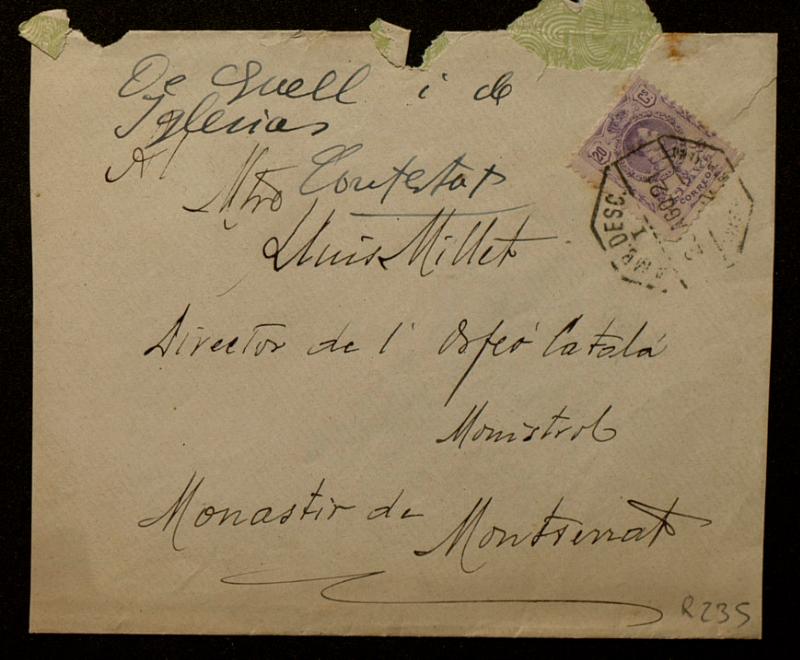 De Güell i de
Iglesias
A
Mtro Contestat
Lluis Millet
Director de l' Orfeó Català
Monistrol
Monastir de
Montserrat
20
CORREOS
AMB. DESC.
AGO 21
R235